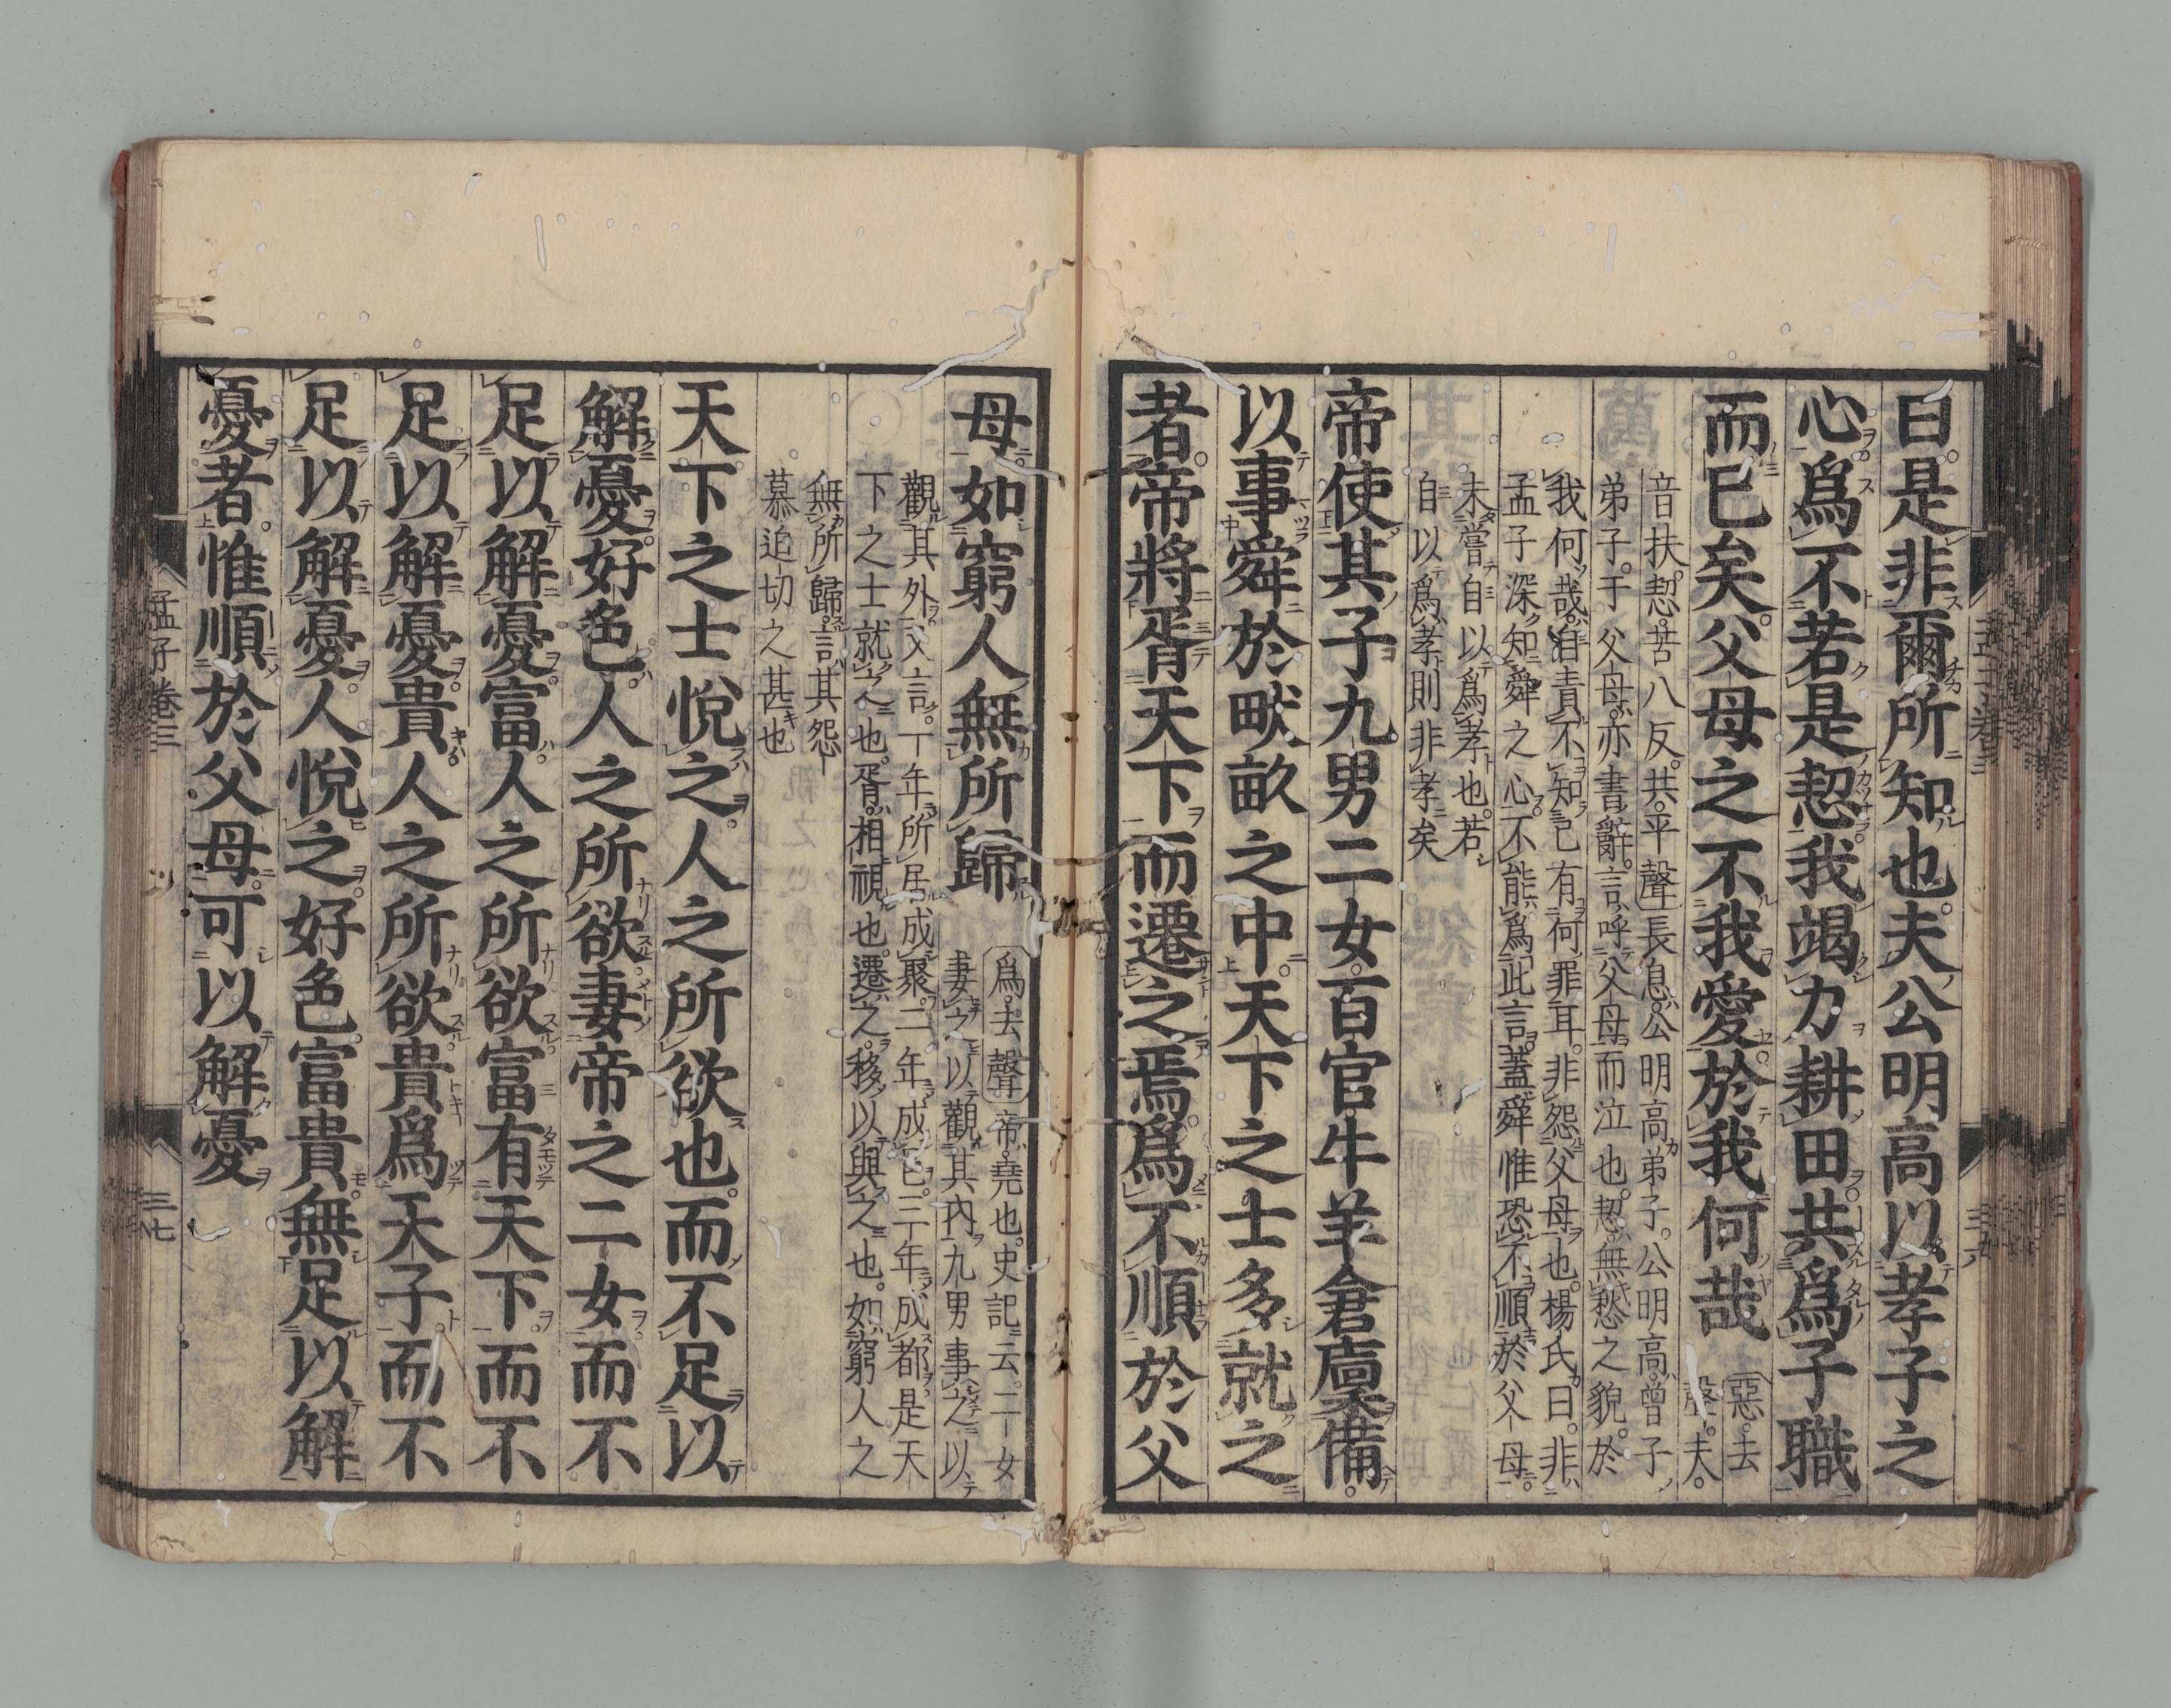 曰是非爾所知也夫公明高以孝子之
心爲不若是恝我竭力耕田共爲子職
而已矣父母之不我愛於我何哉
惡去
聲夫
音扶恝苦八反共平聲長息公明高弟子公明高曾子
弟子于父母亦書辭言呼父母而泣也恝無愁之貌於
我何哉自責不知己有何罪耳非怨父母也楊氏曰非
孟子深知舜之心不能爲此言蓋舜惟恐不順於父母
未嘗自以爲孝也若
自以爲孝則非孝矣
帝使其子九男二女百官牛羊倉廩備
以事舜於畎畝之中天下之士多就之
者帝將胥天下而遷之焉爲不順於父
母如窮人無所歸
爲去聲帝堯也史記云二女
妻之以觀其內九男事之以
觀其外又言一年所居成聚二年成邑三年成都是天
下之士就之也胥相視也遷之移以與之也如窮人之
無所歸言其怨
慕迫切之甚也
天下之士悅之人之所欲也而不足以
解憂好色人之所欲妻帝之二女而不
足以解憂富人之所欲富有天下而不
足以解憂貴人之所欲貴爲天子而不
足以解憂人悅之好色富貴無足以解
憂者惟順於父母可以解憂
孟子卷三
三七